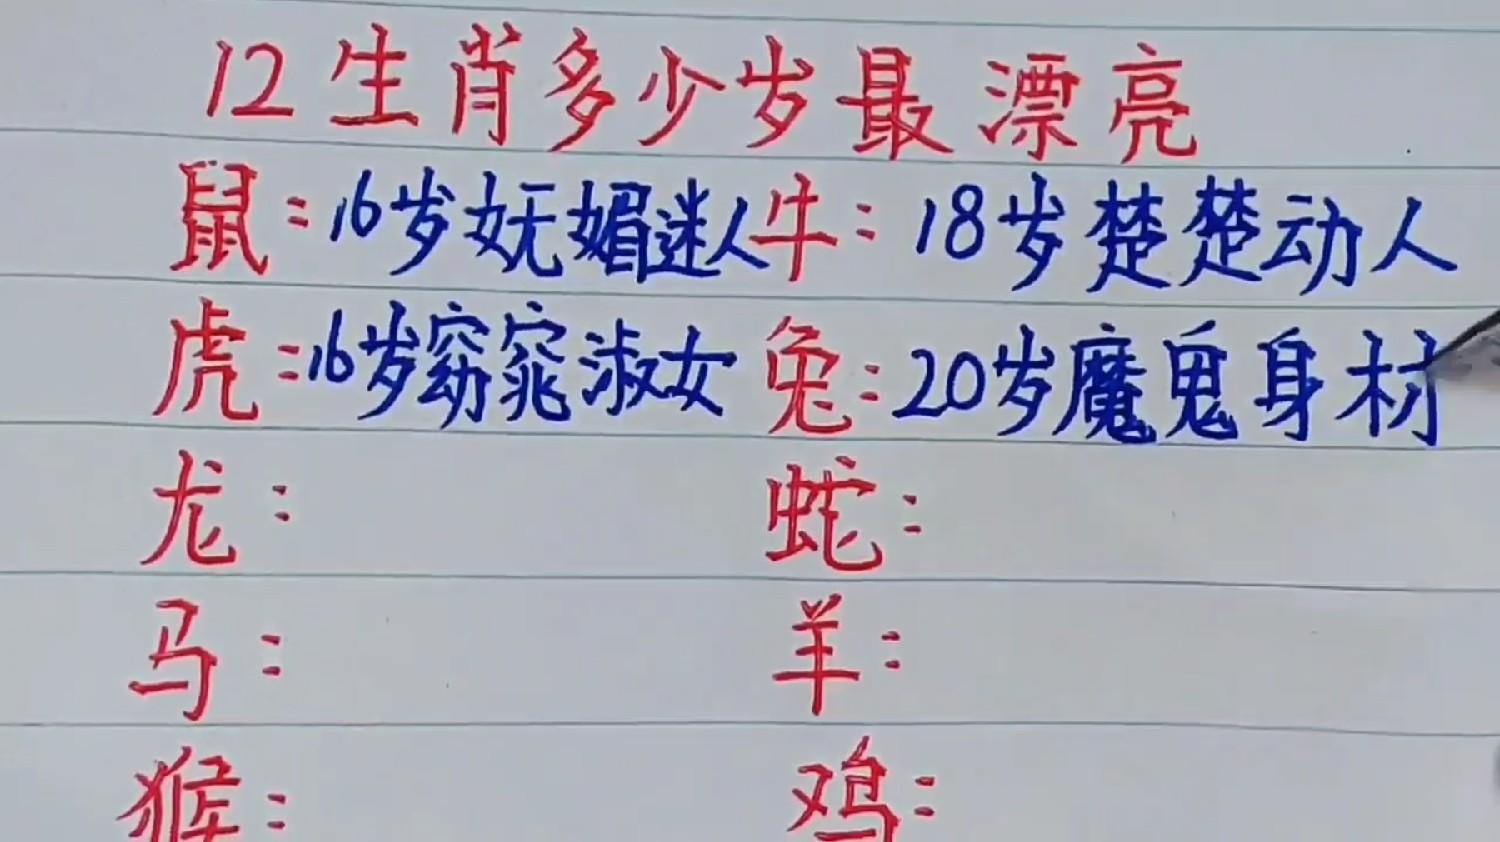 12生肖多少岁最漂亮
鼠：16岁妩媚迷人 牛：18岁楚楚动人
虎：16岁窈窕淑女 兔：20岁魔鬼身材
龙： 蛇：
马： 羊：
猴： 鸡：